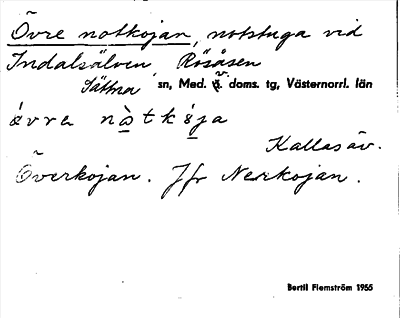 Övre notkojan, notstuga vid
Indalsälven Rösåsen
Sättna sn, Med. v. doms. tg, Västernorrl. län
ǿvra nò̱tkǿ̱ja
Kallas äv.
Överkojan. Jfr Nerkojan.
Bertil Flemström 1955